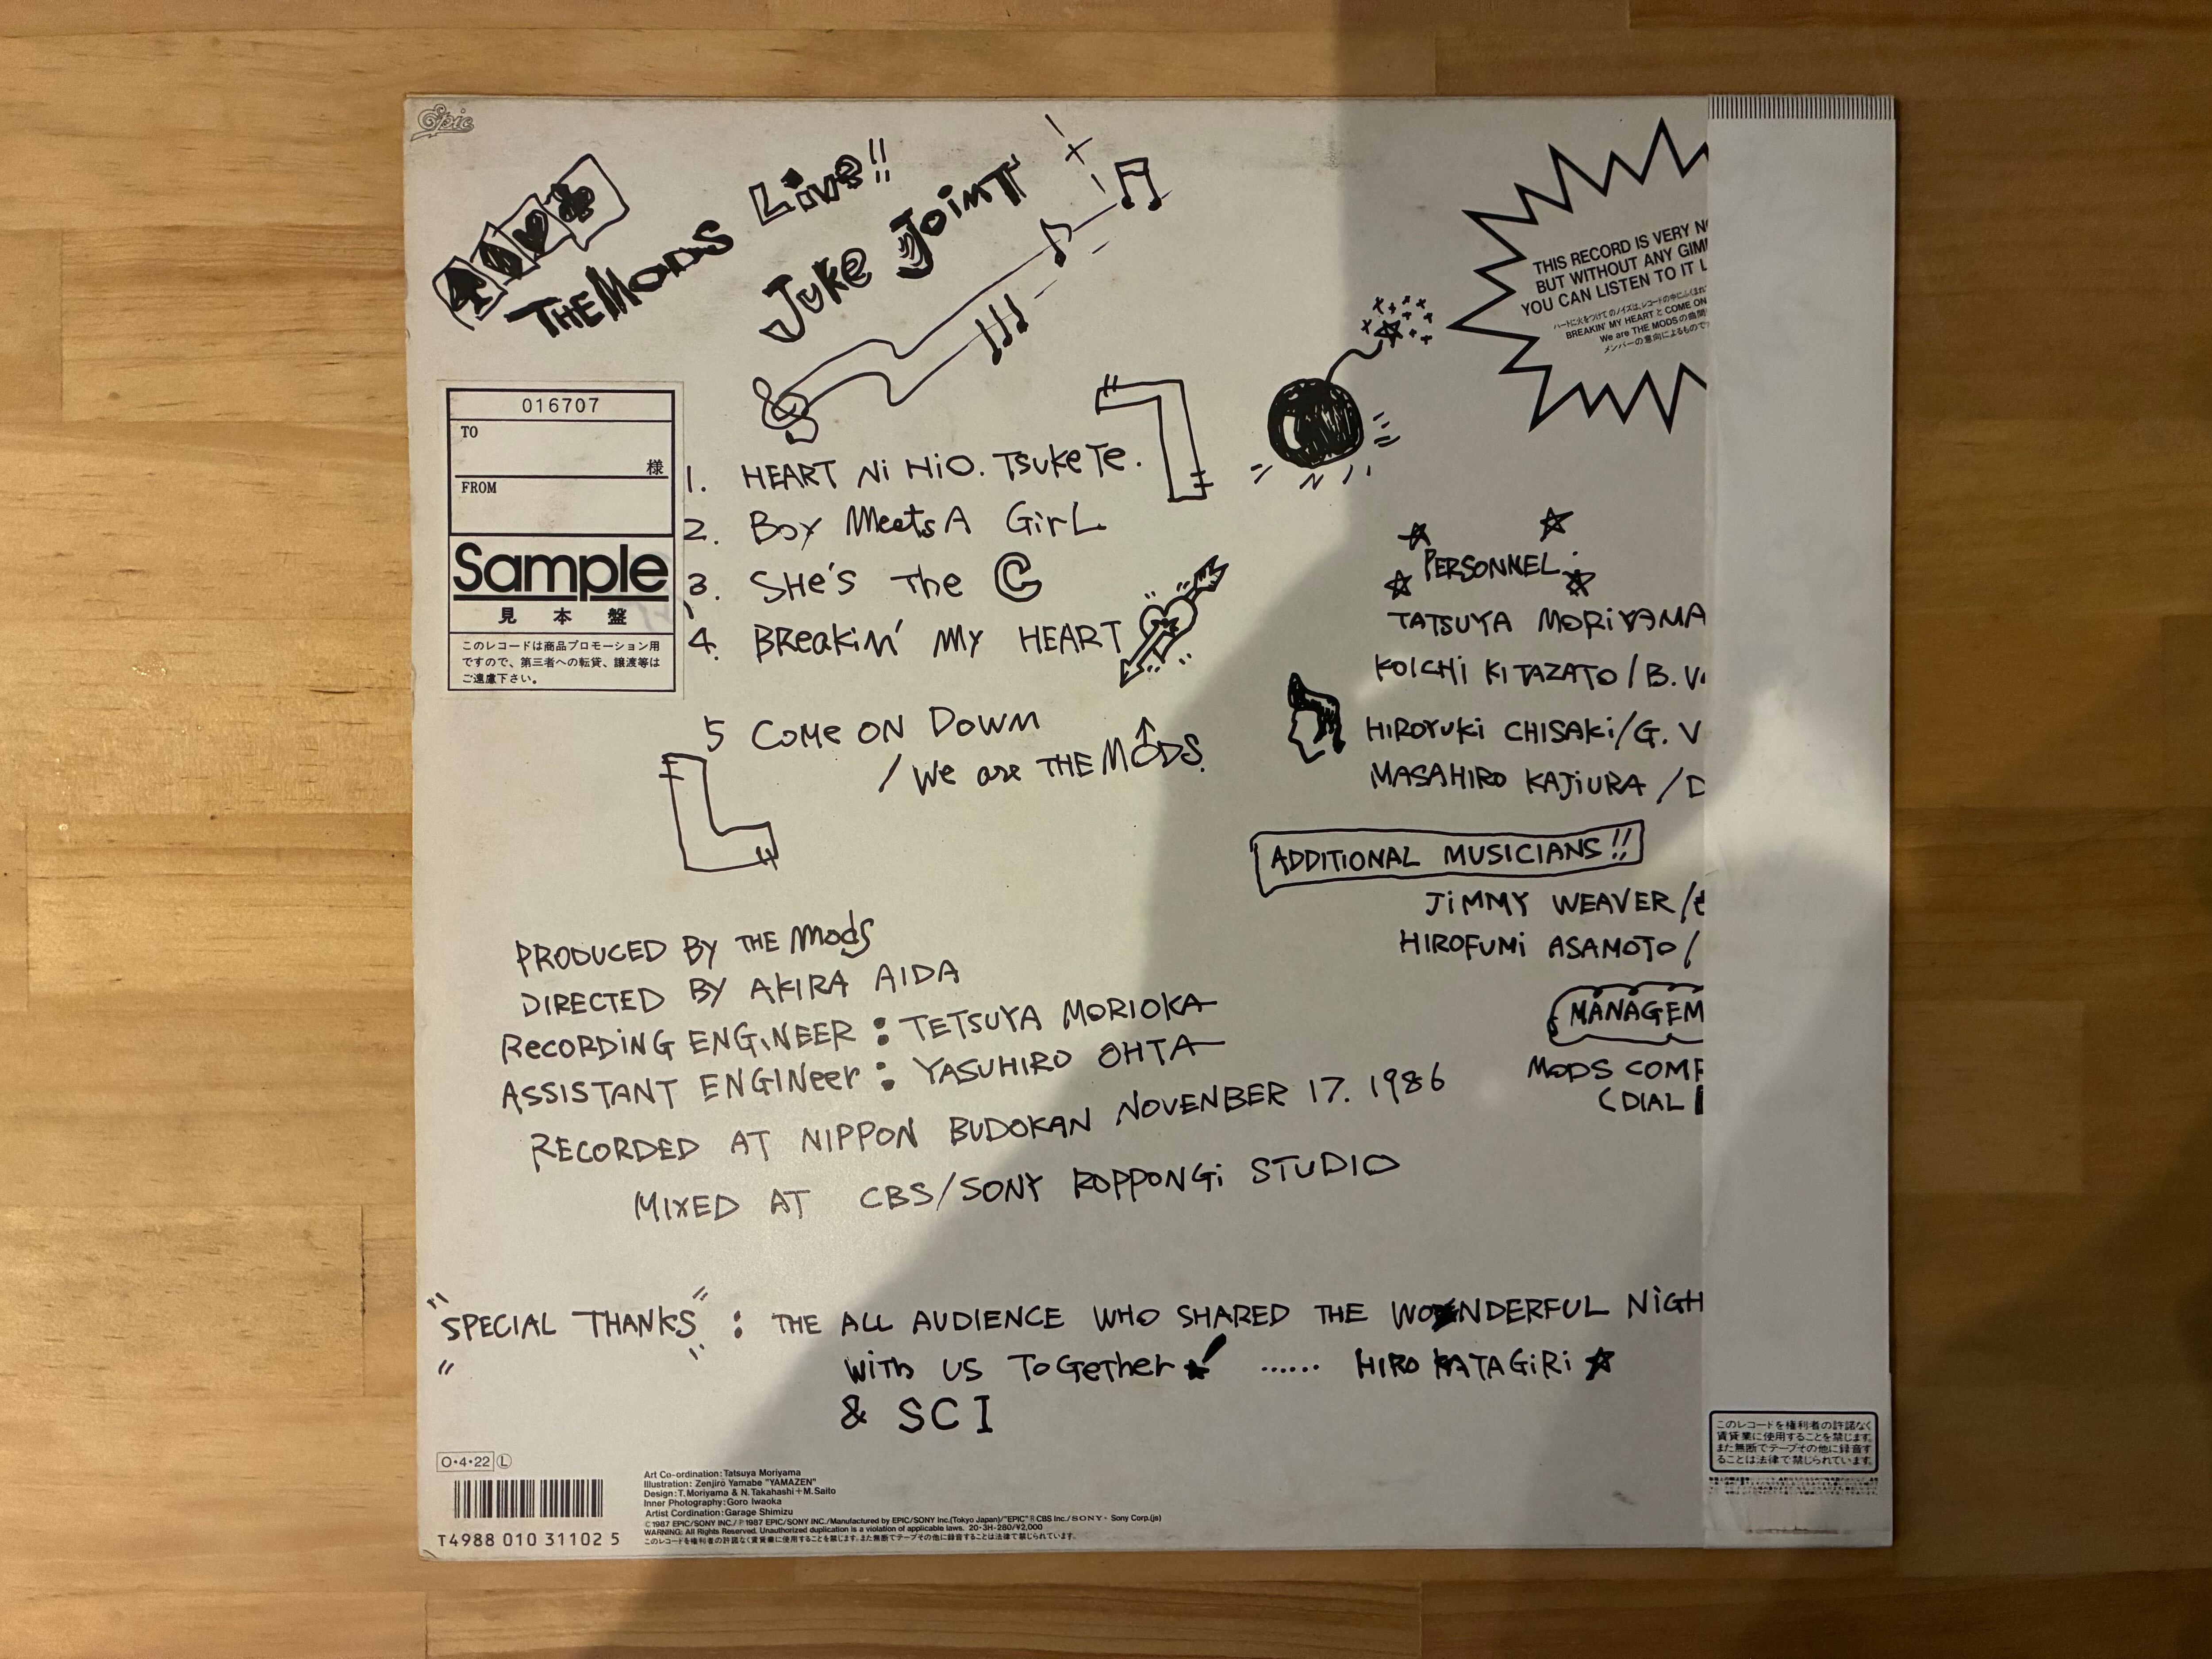 Epic
THE MODS Live!!
Juke Joint
THIS RECORD IS VERY
BUT WITHOUT ANY
YOU CAN LISTEN TO IT
BREAKIN' MY HEART と COME ON
We are THE MODS の曲間
メンバーの意向によるもので
016707
TO
様
FROM
Sample
見本盤
このレコードは商品プロモーション用
ですので、第三者への転貸、譲渡等は
ご遠慮下さい。
1. HEART Ni HiO. TSUKeTe.
2. Boy Meets A GirL
3. SHe's The C
4. BReakin' My HEART
5 Come ON DOWN
/ We are THE MODS.
PERSONNEL
TATSUYA MORiYAMA
KOICHi KITAZATO / B.
HIROYUKi CHISAKi / G. V
MASAHIRO KAJiURA / D
ADDITIONAL MUSICIANS!!
JiMMY WEAVER /
HIROFUMi ASAMOTO /
MANAGEM
MODS COMP
(DIAL
PRODUCED BY THE Mods
DIRECTED BY AKIRA AIDA
RecORDiNG ENGiNEER : TETSUYA MORIOKA
ASSISTANT ENGINeer : YASUHIRO OHTA
RECORDED AT NIPPON BUDOKAN NOVENBER 17. 1986
MIXED AT CBS/SONY ROPPONGi STUDIO
"SPECIAL THANKS" : THE ALL AUDIENCE WHO SHARED THE WONDERFUL NiGH
With US ToGether! ...... HIRO KATAGiRi
& SCI
O・4・22 L
T4988 010 31102 5
Art Co-ordination: Tatsuya Moriyama
Illustration: Zenjiro Yamabe "YAMAZEN"
Design: T. Moriyama & N. Takahashi + M. Saito
Inner Photography: Goro Iwaoka
Artist Cordination: Garage Shimizu
© 1987 EPIC/SONY INC./℗ 1987 EPIC/SONY INC./Manufactured by EPIC/SONY Inc.(Tokyo Japan)/"EPIC" ® CBS Inc./SONY® Sony Corp.(js)
WARNING: All Rights Reserved. Unauthorized duplication is a violation of applicable laws. 20・3H-280/¥2,000
このレコードを権利者の許諾なく賃貸業に使用することを禁じます。また無断でテープその他に録音することは法律で禁じられています。
このレコードを権利者の許諾なく
賃貸業に使用することを禁じます。
また無断でテープその他に録音す
ることは法律で禁じられています。